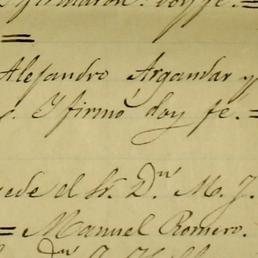 firmaron. doy fe. =
=
Alejandro Argandar y
s. Y firmó doy fe. =
ede el Sr. Dn. M. J.
= Manuel Romero.
Dn. J.